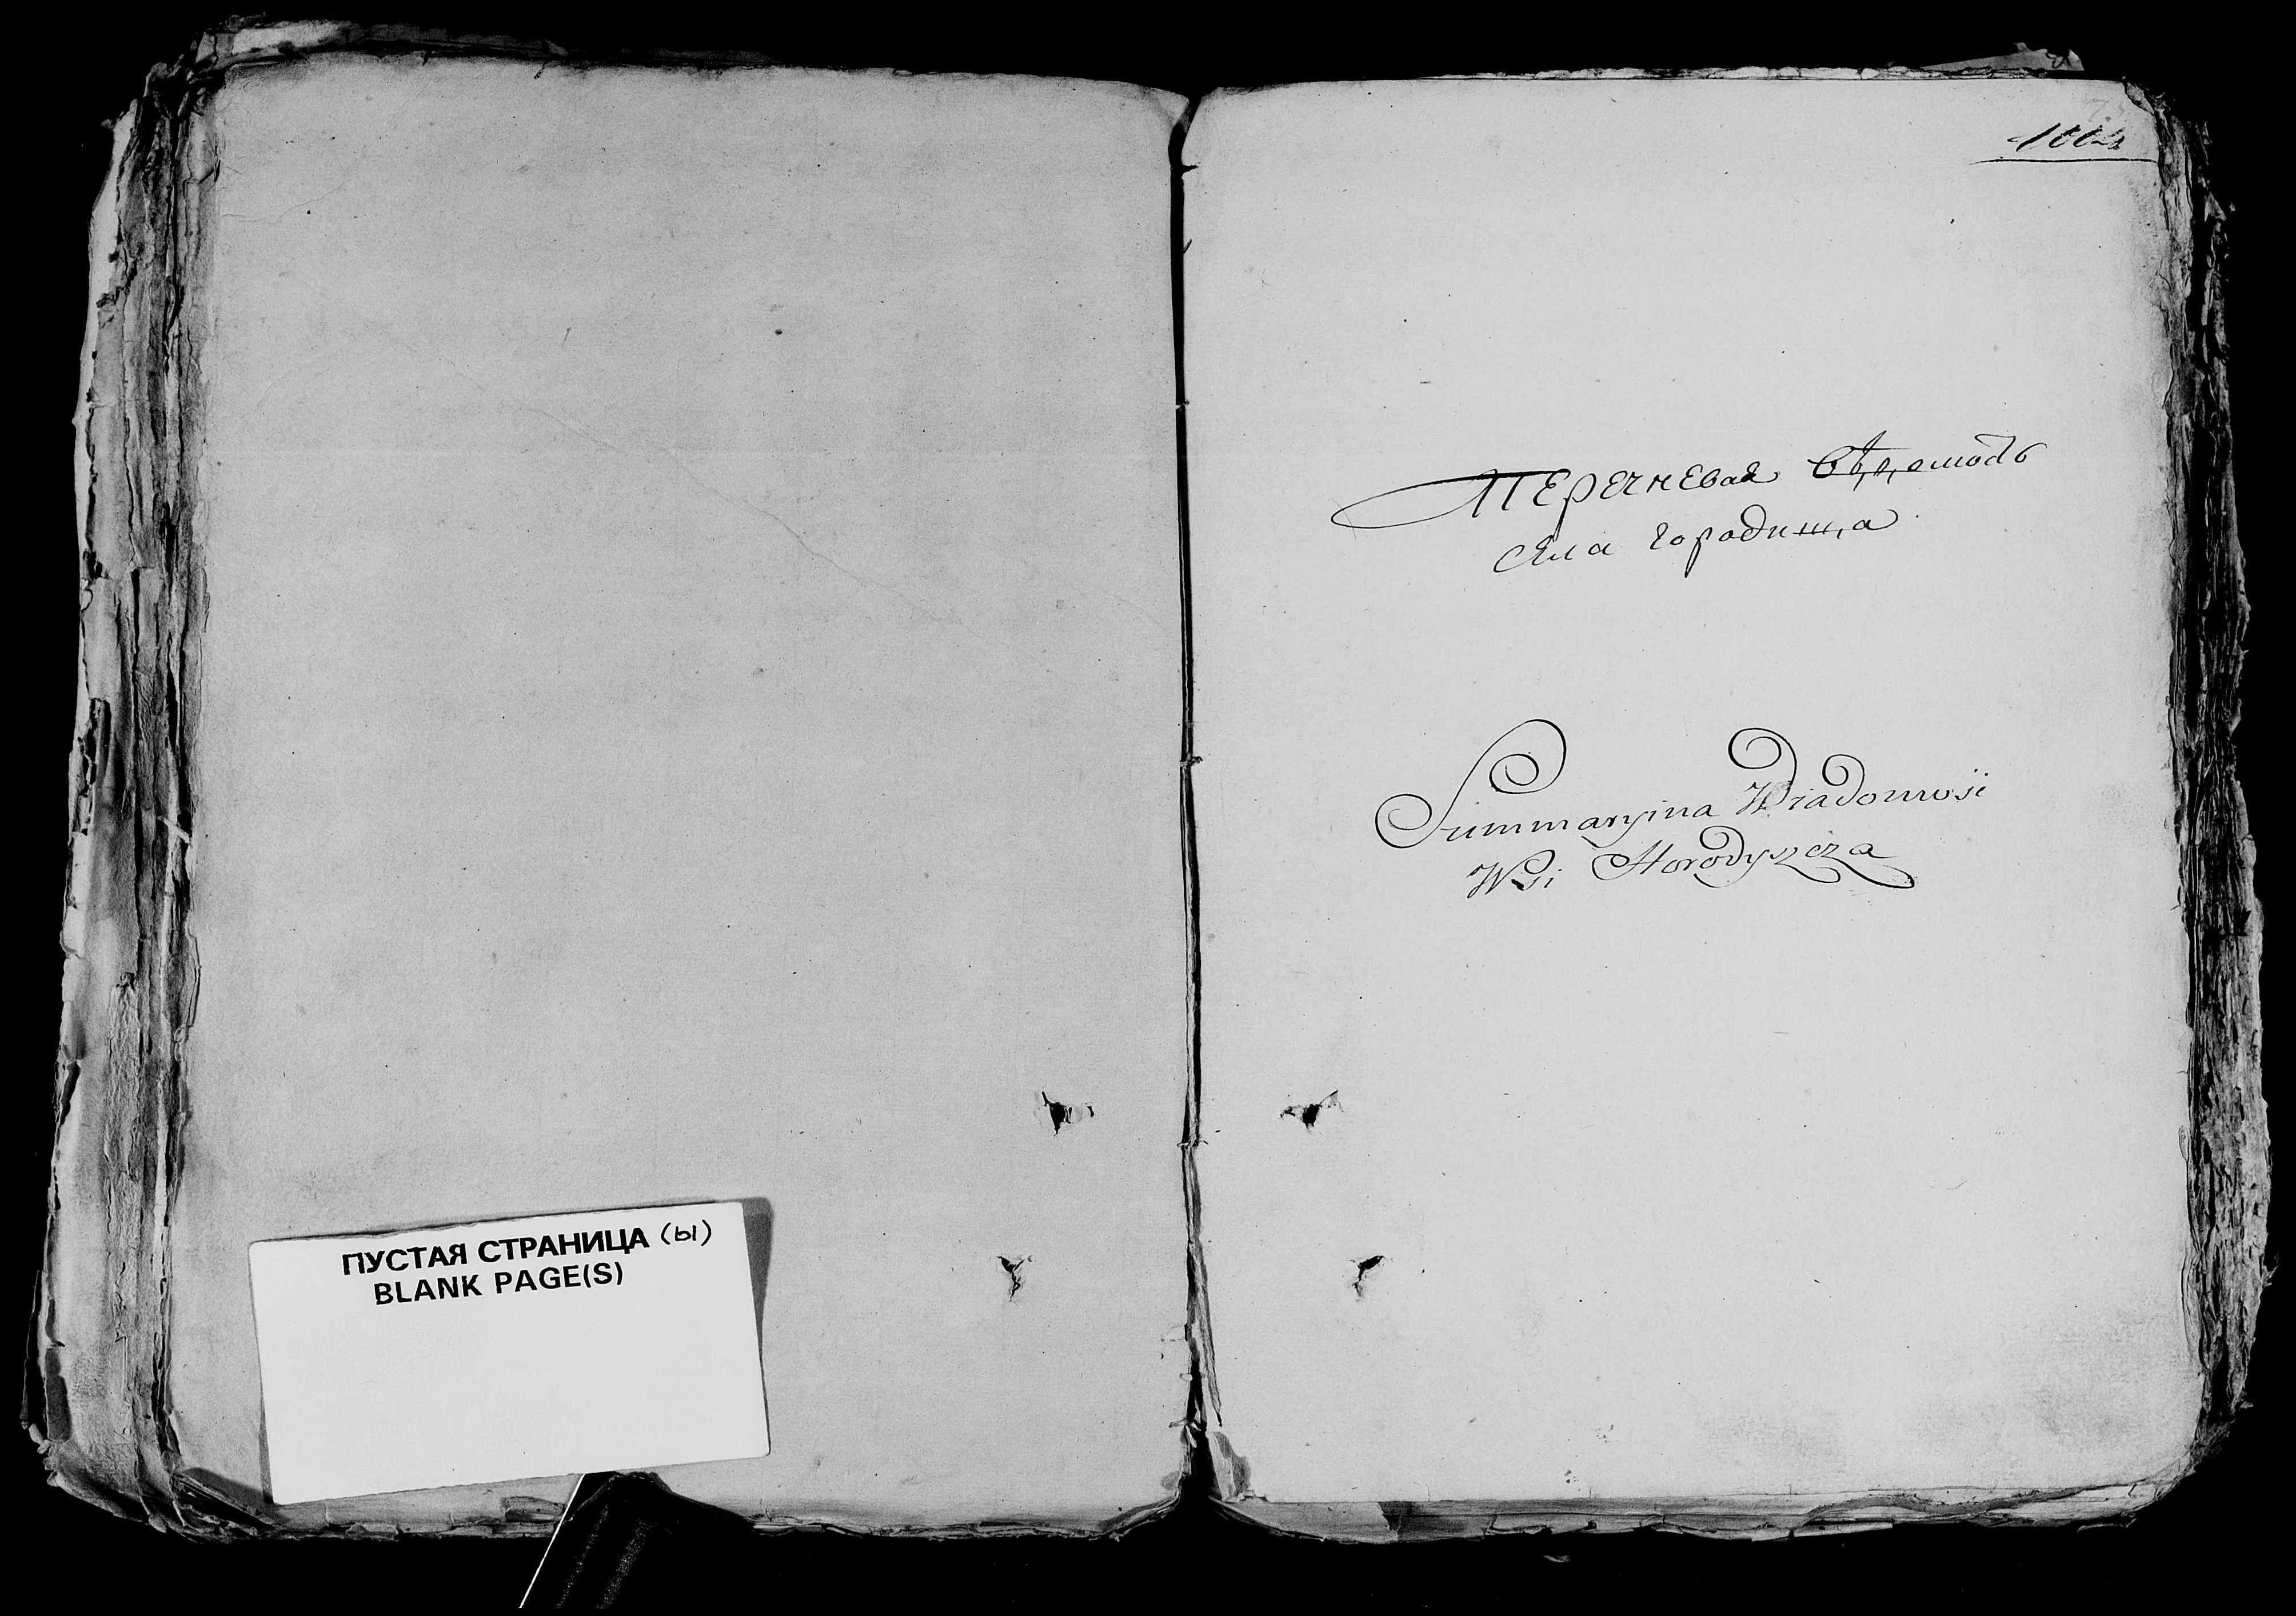 ПУСТАЯ СТРАНИЦА (ы)
BLANK PAGE(S)
Перечневая вѣдомость
села городища
Summaryina Wiadomosi
Wsi Horodyszcza